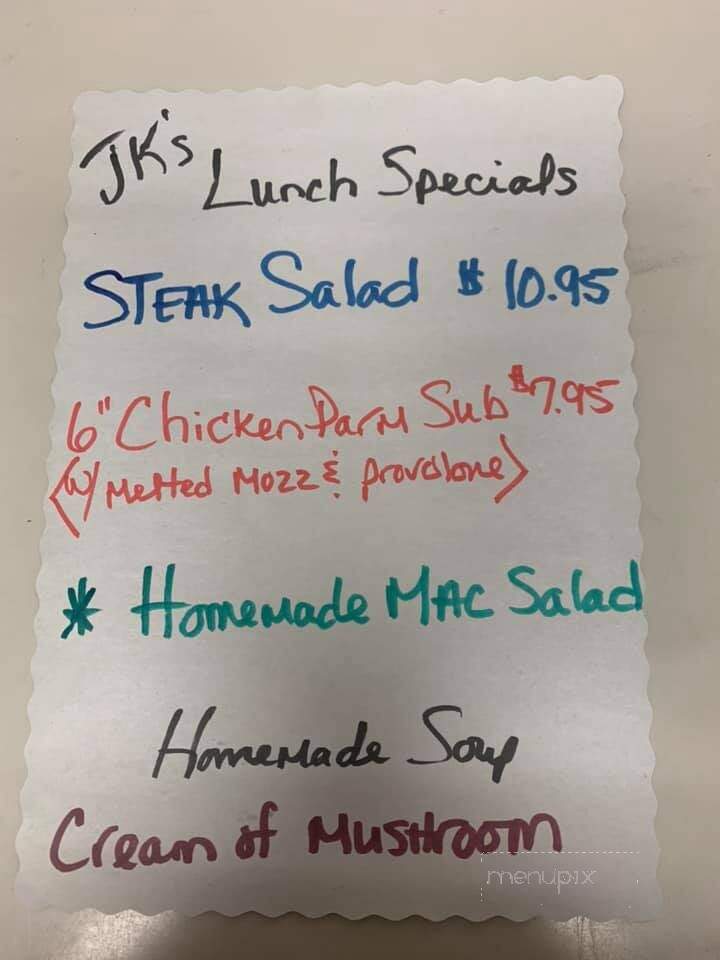 JK's Lunch Specials
STEAK Salad $10.95
6" Chicken Parm Sub $7.95
(w/ Melted Mozz & provolone)
* Homemade MAC Salad
Homemade Soup
Cream of MUSHROOM
menupix